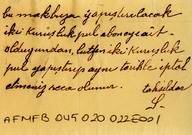 bu makbuza yapıştırılacak
iki kuruşluk pul aboneye ait
olduğundan, lütfen iki kuruşluk
pul yapıştırıp aynı tarihle iptal
etmeniz rica olunur. tahsildar
AFMFB 045 020 022E001